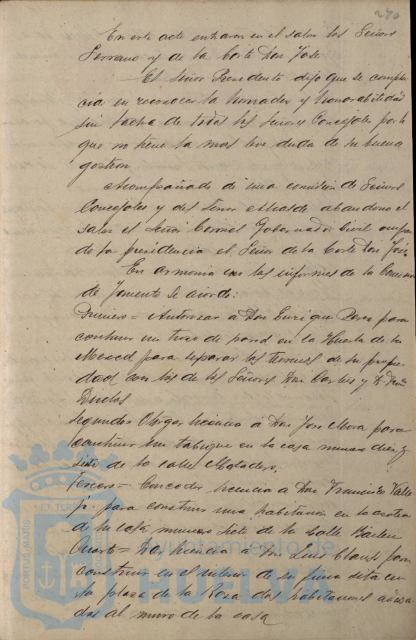 270
En este acto entraron en el salon los Señores
Serrano y de la Corte Don José
El Señor Presidente dijo que se compla-
cia en reconocer la honradez y honorabilidad
sin tacha de todos los Señores Concejales por lo
que no tiene la mas leve duda de su buena
gestion
Acompañado de una comision de Señores
Concejales y del Señor Alcalde abandona el
salon el Señor Coronel Gobernador Civil ocupan-
do la presidencia el Señor de la Corte Don José
En armonia con los informes de la Comision
de Fomento se acordó:
Primero = Autorizar á Don Enrique Perez para
construir un trozo de pared en la Huerta de la
Merced para separar los terrenos de su propie-
dad con los de los Señores Don Carlos y D.
Segundo Otorgar licencia á Don José Mora para
construir un tabique en la casa numero diez y
siete de la calle
Tercero = Conceder licencia á Don Francisco Valle
jo para construir una habitacion en la azotea
de la casa numero siete de la calle
Cuarto = Dar licencia á Don Luis para
construir en el interior de su finca sita en
la plaza de la dos habitaciones adosa-
das al muro de la casa
Ayuntamiento de
HUELVA
PORTUS MARIS
ET TERRAE